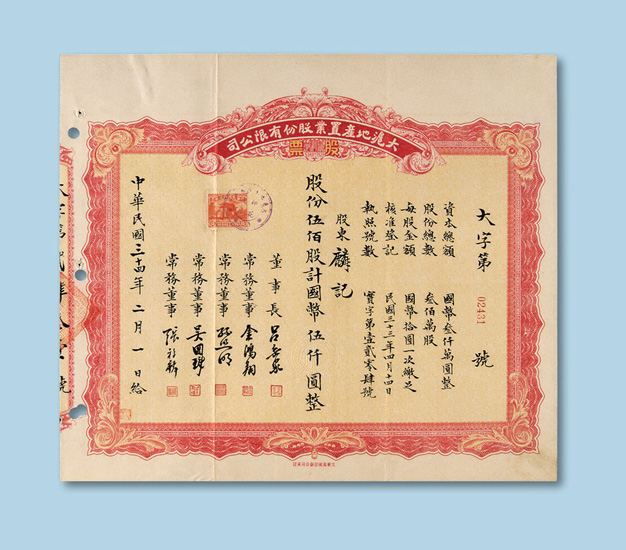 大滬地產置業股份有限公司
股票
大字第 02431 號
資本總額 國幣叁仟萬圓整
股份總數 叁佰萬股
每股金額 國幣拾圓一次繳足
核准登記 民國三十三年四月十四日
執照號數 實字第壹貳零肆號
股東 麟記
股份伍佰股計國幣伍仟圓整
董事長
常務董事
常務董事
常務董事
常務董事
中華民國三十四年二月一日給